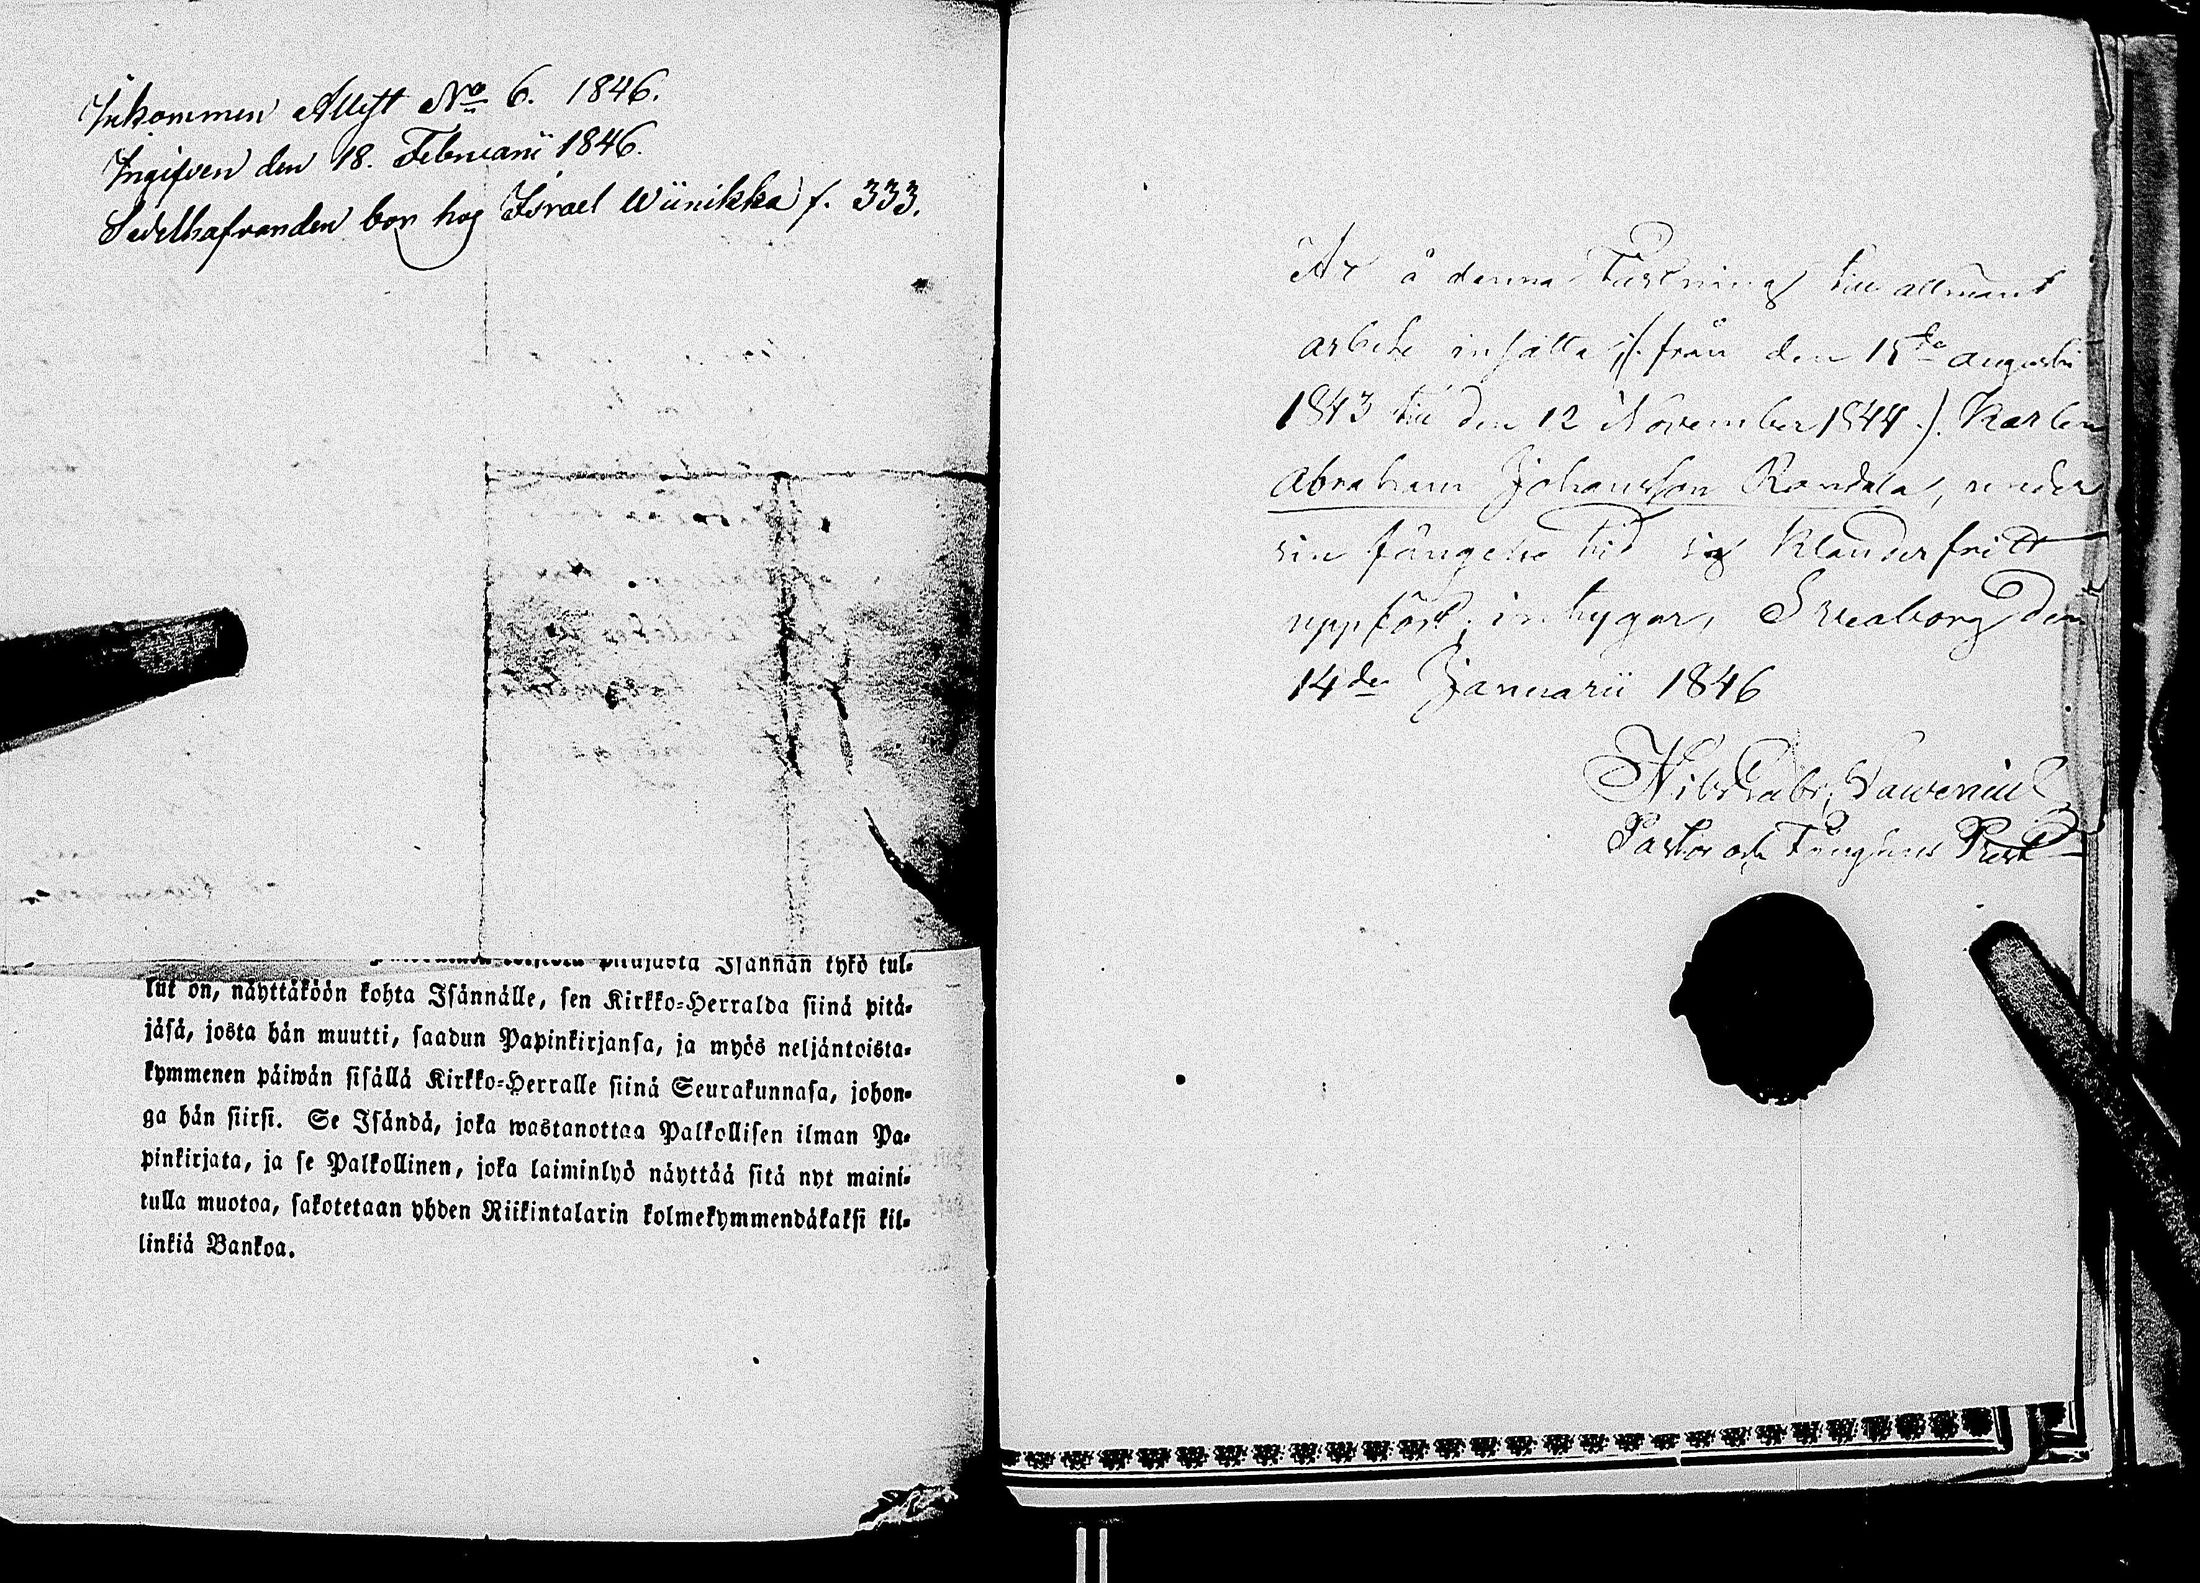 Inkommen Attest No 6. 1846.
Ingifven den 18. Februarii 1846.
Sedelhafvanden bor hos Israel Wiinikka f. 333.
pitäjästä Isännän tykö tul-
lut on, näyttäköön kohta Isännälle, sen Kirkko-Herralda siinä pitä-
jäsä, josta hän muutti, saadun Papinkirjansa, ja myös neljäntoista-
kymmenen päiwän sisällä Kirkko-Herralle siinä Seurakunnasa, johon-
ga hän siirsi. Se Isändä, joka wastanottaa Palkollisen ilman Pa-
pinkirjata, ja se Palkollinen, joka laiminlyö näyttää sitä nyt maini-
tulla muotoa, sakotetaan yhden Riikintalarin kolmekymmendäkaksi kil-
linkiä Bankoa.
At å denna Fästning till allmänt
arbete insatta /: från den 15de augusti
1843 till den 12 November 1844 :/ Karlen
Abraham Johansson Randala, under
sin fängelse tid sig klanderfritt
uppfört; intygar, Sveaborg den
14de Januarii 1846
Nils Gabr. Lavenius
Pastor och Fånguns Prest